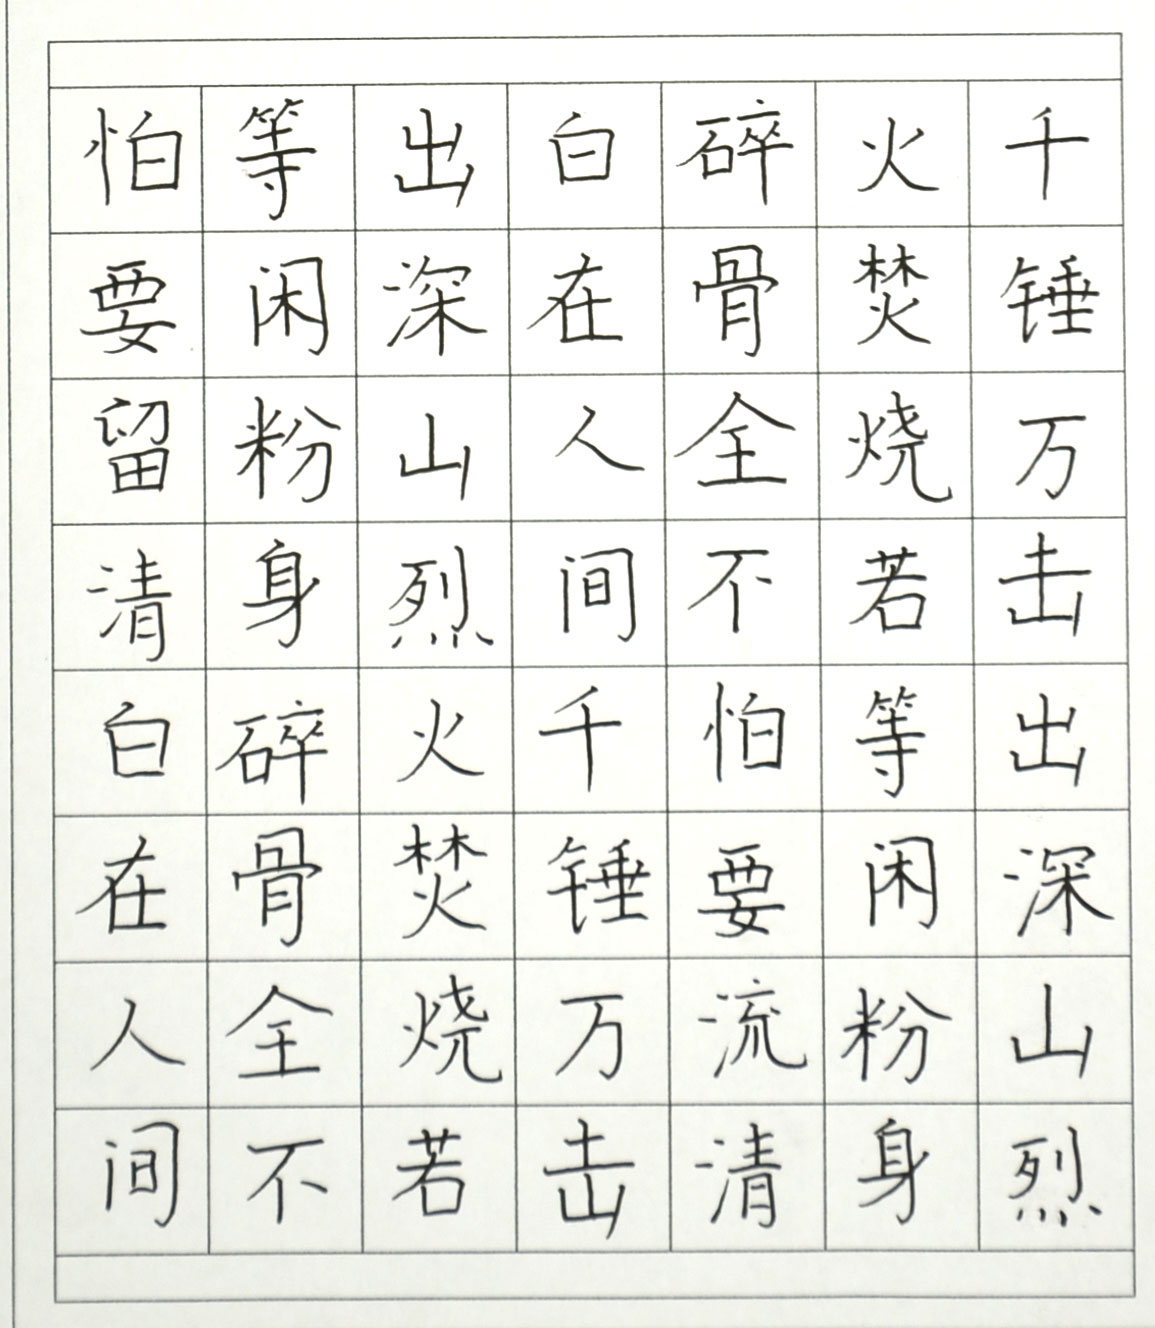 千锤万击出深山烈
火焚烧若等闲粉身
碎骨全不怕要流清
白在人间千锤万击
出深山烈火焚烧若
等闲粉身碎骨全不
怕要留清白在人间